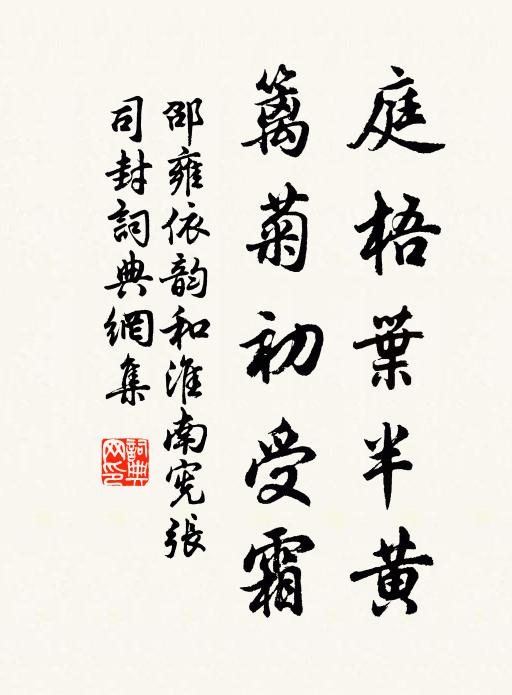 庭梧葉半黄
籬菊初受霜
邵雍依韵和淮南宪張
司封詞典網集
詞典網印